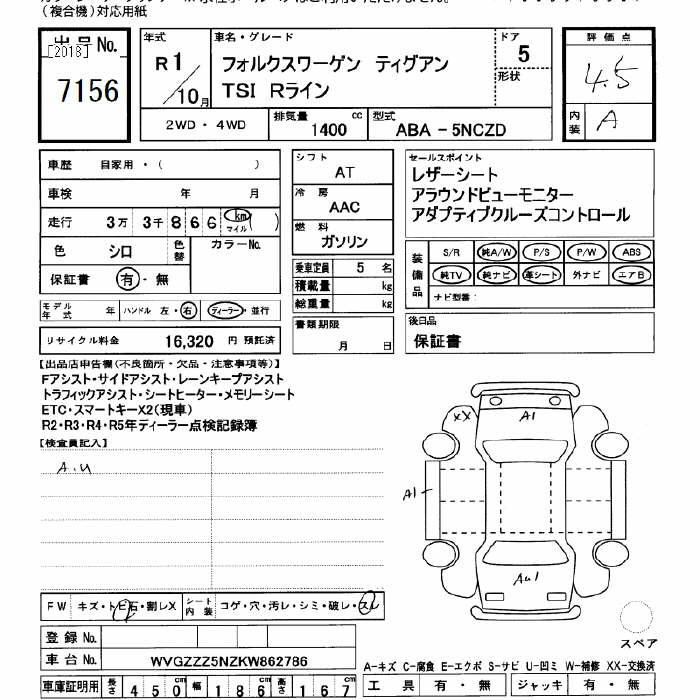 （複合機）対応用紙
出品No.
[2018]
7156
年式
R1／10月
車名・グレード
フォルクスワーゲン ティグアン
TSI Rライン
ドア
5
形状
2WD・4WD
排気量
1400 cc
型式
ABA-5NCZD
評価点
4.5
内装
A
車歴 自家用・( )
車検 年 月
走行 3万 3千 8 6 6 km マイル ( )
色 シロ 色替 カラーNo.
保証書 有・無
シフト
AT
冷房
AAC
燃料
ガソリン
セールスポイント
レザーシート
アラウンドビューモニター
アダプティブクルーズコントロール
装備品
S/R 純A/W P/S P/W ABS
純TV 純ナビ 革シート 外ナビ エアB
ナビ型番:
乗車定員 5 名
積載量 kg
総重量 kg
モデル年式 年 ハンドル 左・右 ディーラー・並行
リサイクル料金 16,320 円 預託済
書類期限
月 日
後日品
保証書
【出品店申告欄(不良箇所・欠品・注意事項等)】
Fアシスト・サイドアシスト・レーンキープアシスト
トラフィックアシスト・シートヒーター・メモリーシート
ETC・スマートキーX2(現車)
R2・R3・R4・R5年ディーラー点検記録簿
【検査員記入】
A.U
XX
A1
A1
AU1
FW キズ・トビ石・割レX シート内装 コゲ・穴・汚レ・シミ・破レ・スレ
登録No.
車台No. WVGZZZ5NZKW862786
スペア
A-キズ C-腐食 E-エクボ S-サビ U-凹ミ W-補修 XX-交換済
車庫証明用 長さ 450 cm 幅 186 cm 高さ 167 cm
工具 有・無 ジャッキ 有・無